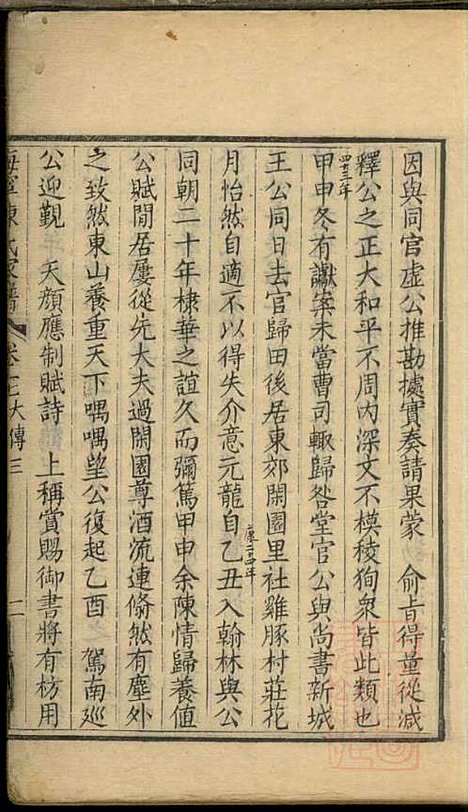 因與同官虛公推勘據實奏請果蒙　俞旨得量從減
釋公之正大和平不周内深文不模稜狥衆皆此類也
四十三年
甲申冬有讞案未當曹司輙歸咎堂官公與尚書新城
王公同日去官歸田後居東郊閑園里社雞豚村莊花
月怡然自適不以得失介意元龍自乙丑入翰林與公
同朝二十年棣華之誼久而彌篤甲申余陳情歸養值
公賦閒居屢從先大夫過閑園尊酒流連翛然有塵外
之致然東山養重天下喁喁望公復起乙酉　駕南巡
公迎覲　天顏應制賦詩　上稱賞賜御書將有枋用
海寧陳氏家譜
大傳三